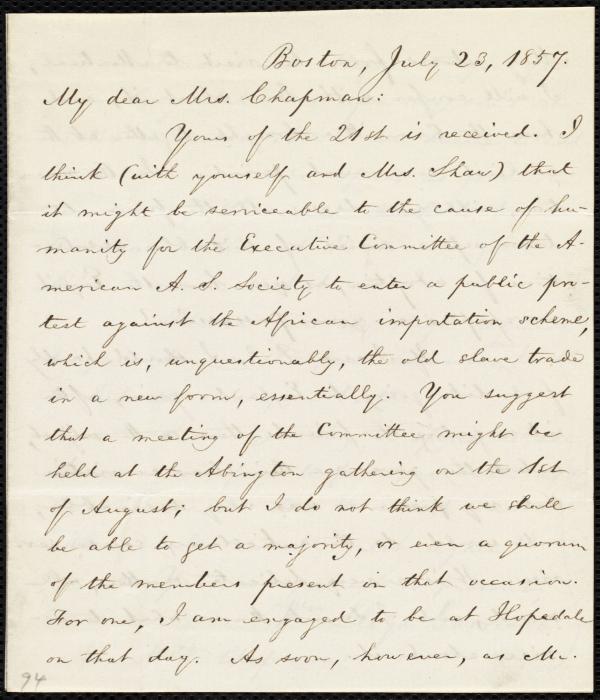 Boston, July 23, 1857.
My dear Mrs. Chapman:
Yours of the 21st is received. I
think (with yourself and Mrs. Shaw) that
it might be serviceable to the cause of hu-
manity for the Executive Committee of the A-
merican A. S. Society to enter a public pro-
test against the African importation scheme,
which is, unquestionably, the old slave trade
in a new form, essentially. You suggest
that a meeting of the Committee might be
held at the Abington gathering on the 1st
of August; but I do not think we shall
be able to get a majority, or even a quorum
of the members present on that occasion.
For one, I am engaged to be at Hopedale
on that day. As soon, however, as Mr.
94